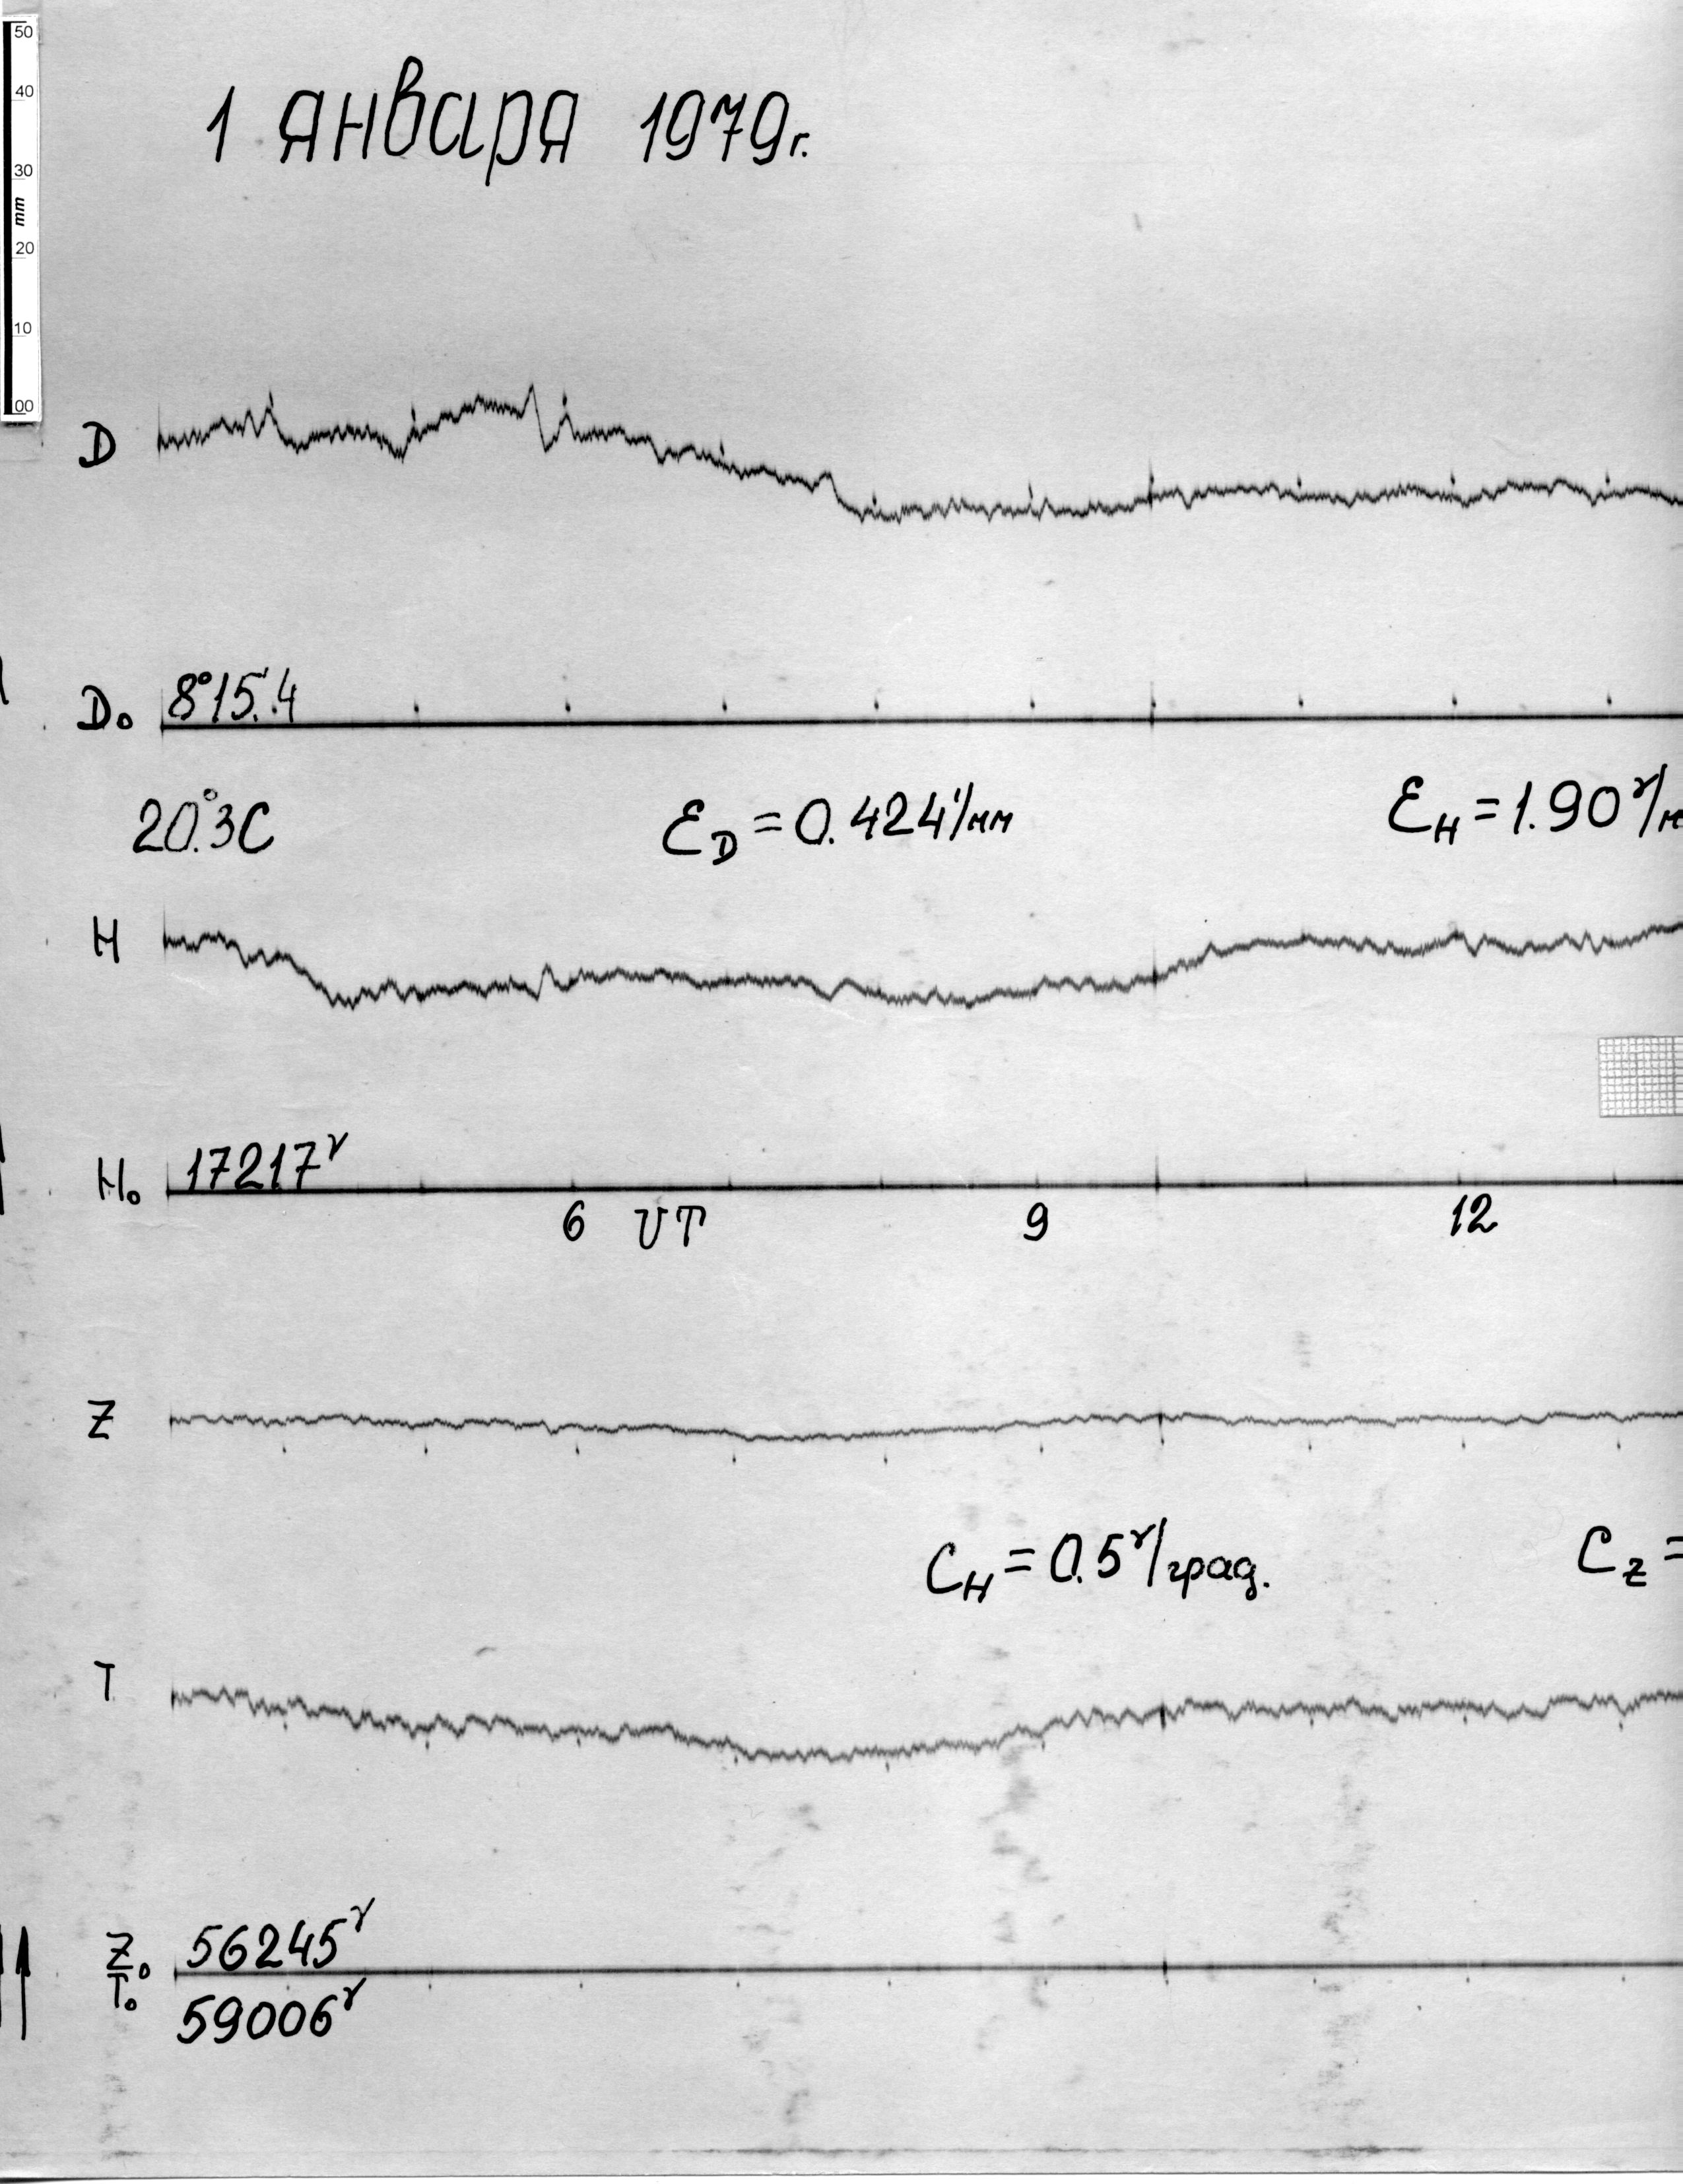 50
40
30
mm
20
10
00
1 января 1979г.
D
D₀ 8°15.'4
20.°3C ε_D = 0.424'/мм ε_H = 1.90γ/м
H
H₀ 17217γ
6 UT 9 12
Z
C_H = 0.5γ/град. C_Z =
T
Z₀ 56245γ
T₀ 59006γ